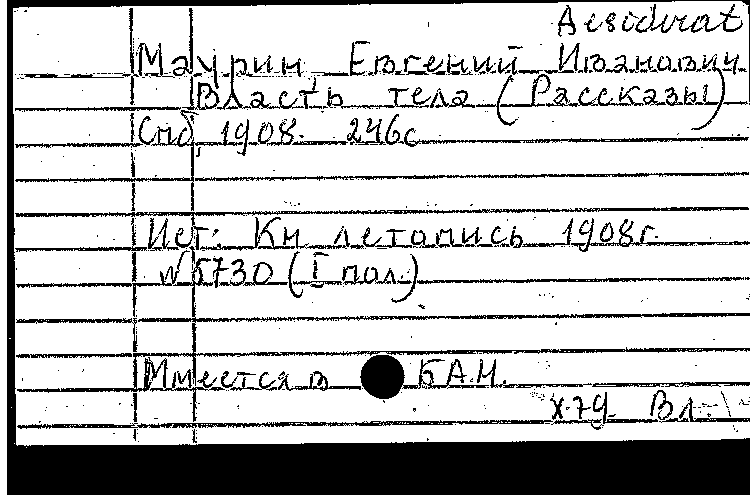 Desiderat
Маурин, Евгений Иванович
Власть тела (Рассказы)
Спб, 1908. 246с
Ист: Кн летопись 1908г.
№5730 (I пол.)
Имеется в БАН.
X-79 Вл.